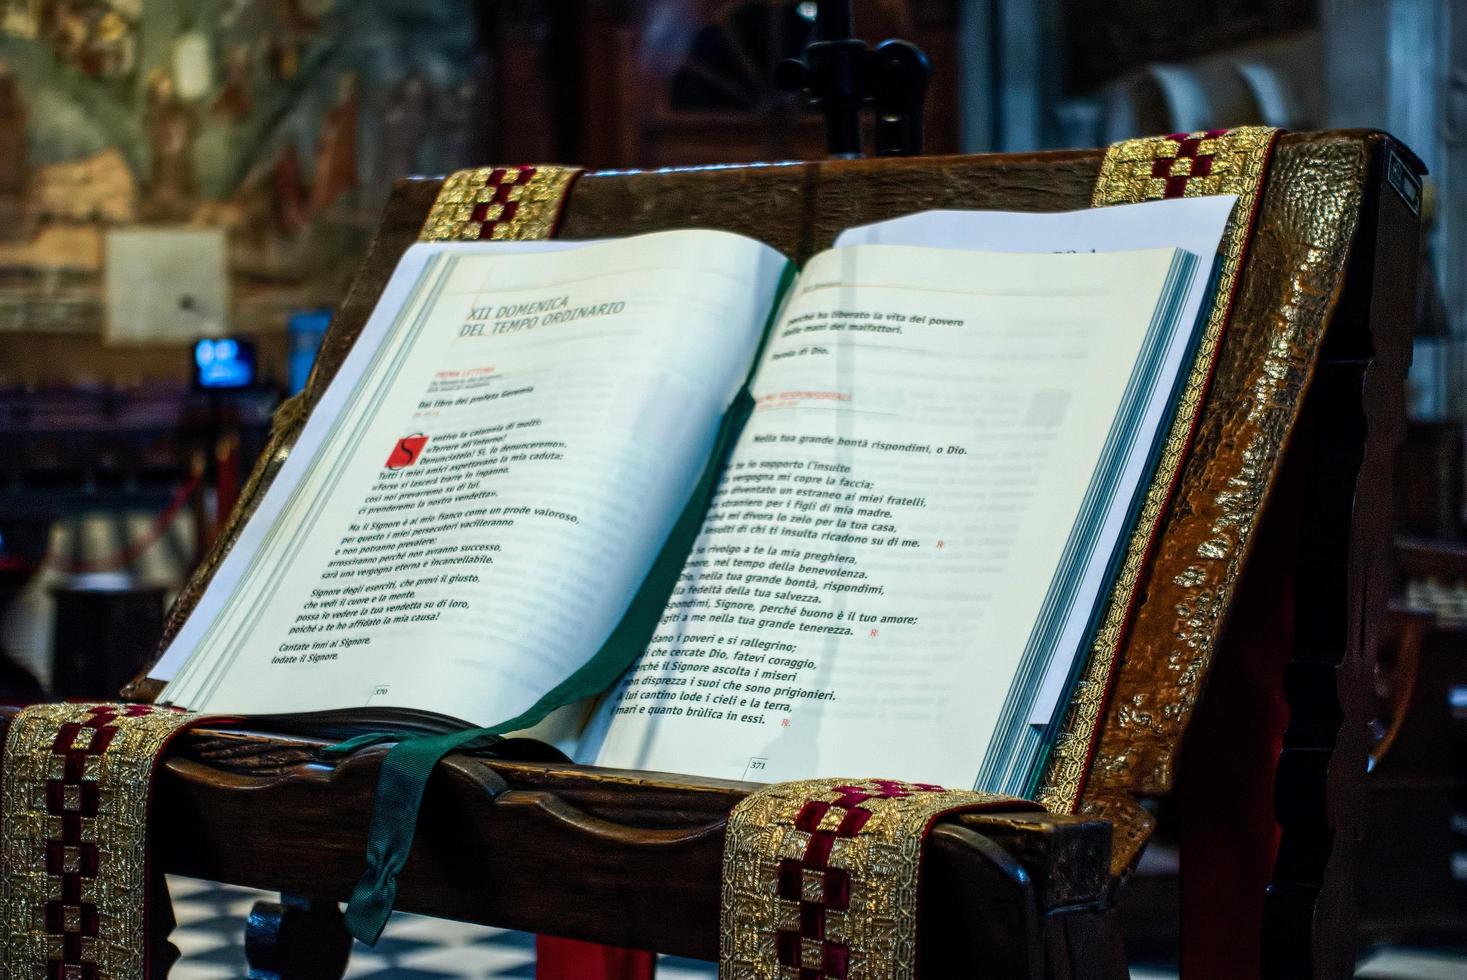 XII DOMENICA
DEL TEMPO ORDINARIO
PRIMA LETTURA
Dal libro del profeta Geremia
Sentivo la calunnia di molti:
«Terrore all'intorno!
Denunciatelo! Sì, lo denunceremo».
Tutti i miei amici aspettavano la mia caduta:
«Forse si lascerà trarre in inganno,
così noi prevarremo su di lui,
ci prenderemo la nostra vendetta».
Ma il Signore è al mio fianco come un prode valoroso,
per questo i miei persecutori vacilleranno
e non potranno prevalere;
arrossiranno perché non avranno successo,
sarà una vergogna eterna e incancellabile.
Signore degli eserciti, che provi il giusto,
che vedi il cuore e la mente,
possa io vedere la tua vendetta su di loro,
poiché a te ho affidato la mia causa!
Cantate inni al Signore,
lodate il Signore,
370
perché ha liberato la vita del povero
dalle mani dei malfattori.
Parola di Dio.
RESPONSORIALE
Nella tua grande bontà rispondimi, o Dio.
te io sopporto l'insulto
vergogna mi copre la faccia;
diventato un estraneo ai miei fratelli,
straniero per i figli di mia madre.
mi divora lo zelo per la tua casa,
insulti di chi ti insulta ricadono su di me. ℟
io rivolgo a te la mia preghiera,
nel tempo della benevolenza.
Dio, nella tua grande bontà, rispondimi,
fedeltà della tua salvezza.
Signore, perché buono è il tuo amore;
a me nella tua grande tenerezza. ℟
i poveri e si rallegrino;
che cercate Dio, fatevi coraggio,
perché il Signore ascolta i miseri
non disprezza i suoi che sono prigionieri.
A lui cantino lode i cieli e la terra,
i mari e quanto brùlica in essi. ℟
371